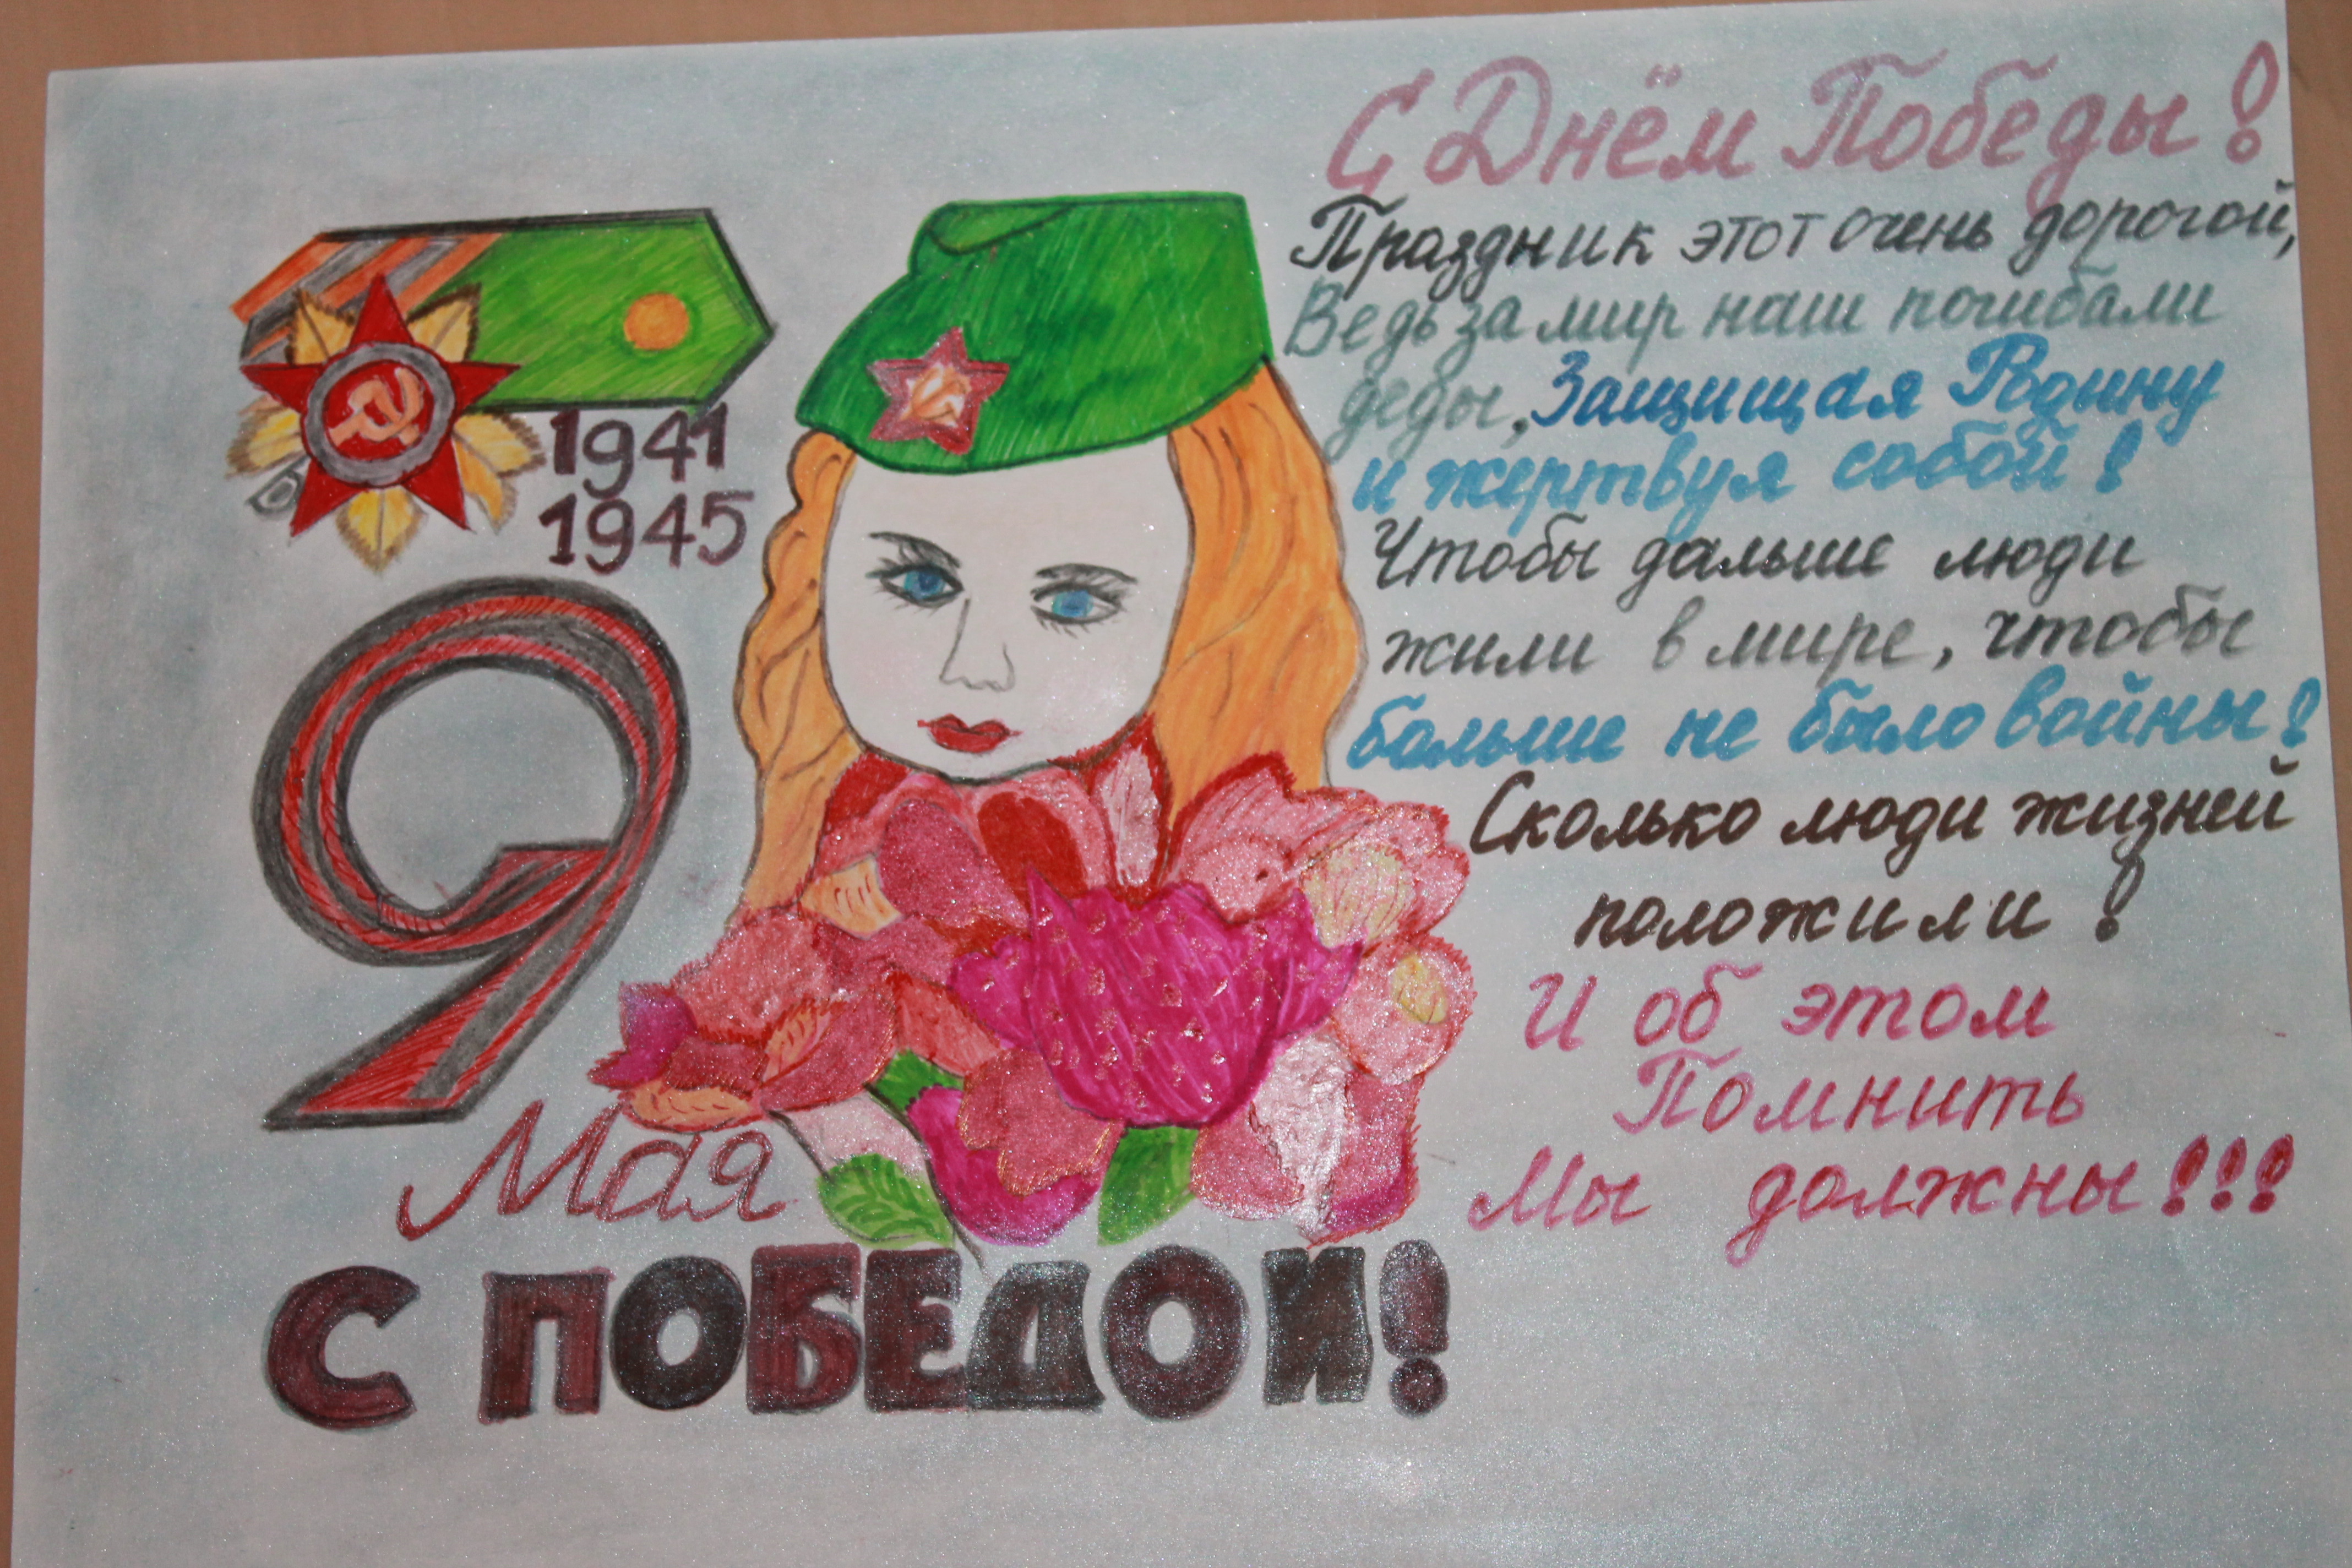 1941
1945
9
Мая
С ПОБЕДОЙ!
С Днём Победы!
Праздник этот очень дорогой,
Ведь за мир наш погибали
деды, Защищая Родину
и жертвуя собой!
Чтобы дальше люди
жили в мире, чтобы
больше не было войны!
Сколько люди жизней
положили!
И об этом
Помнить
Мы должны!!!